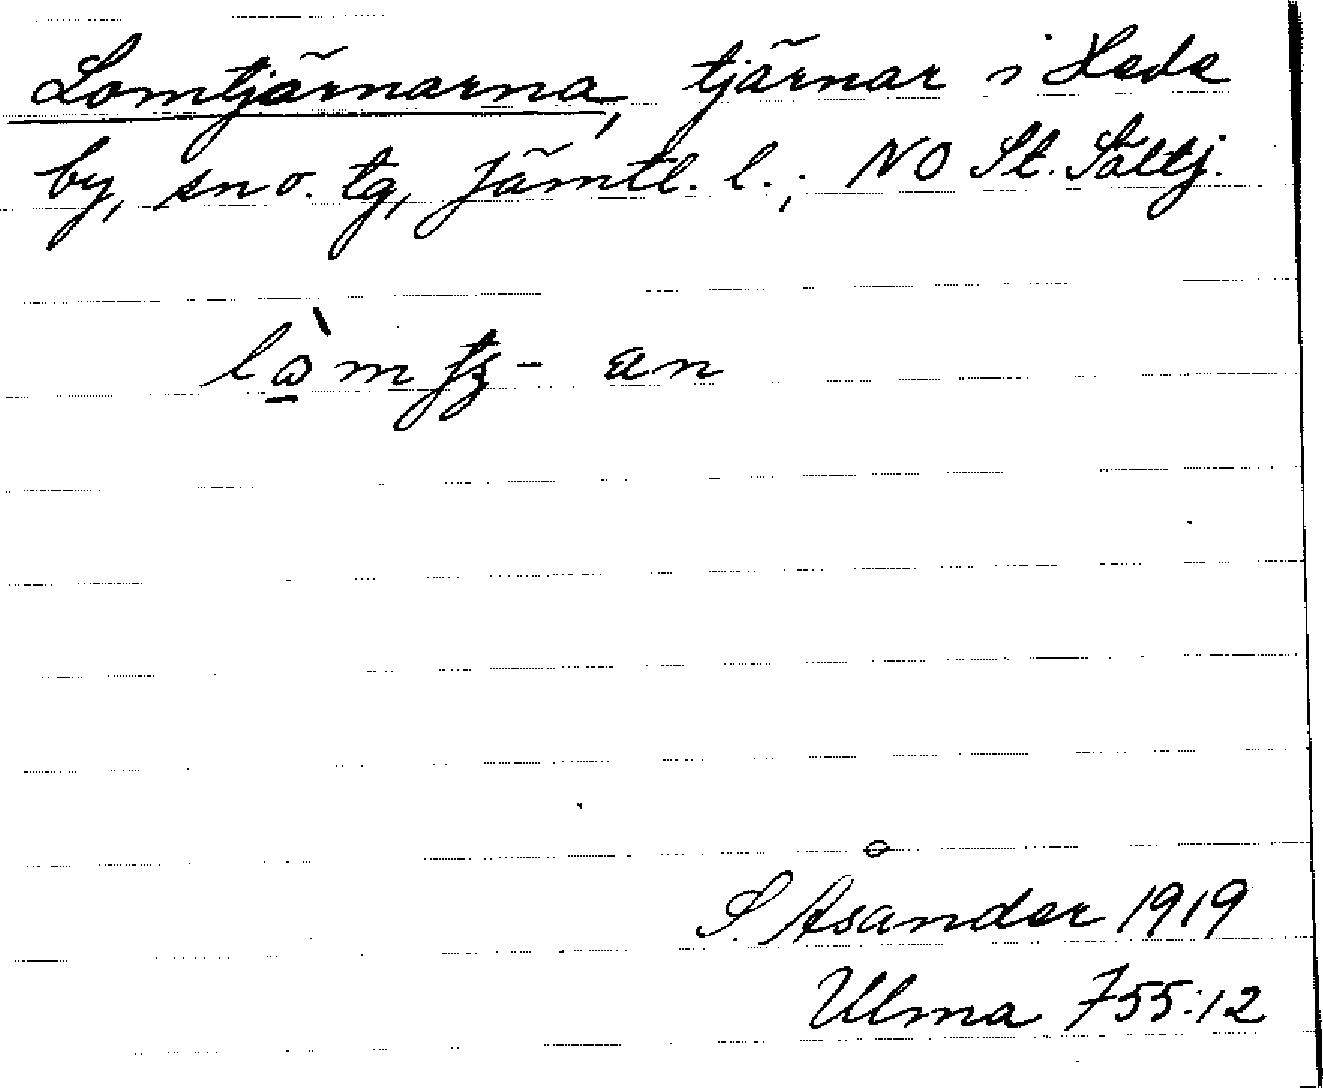 Lomtjärnarna, tjärnar i Hede
by, sn o. tg, Jämtl. l.; NO St. Sältj.
an
S. Åsander 1919
Ulma 755:12